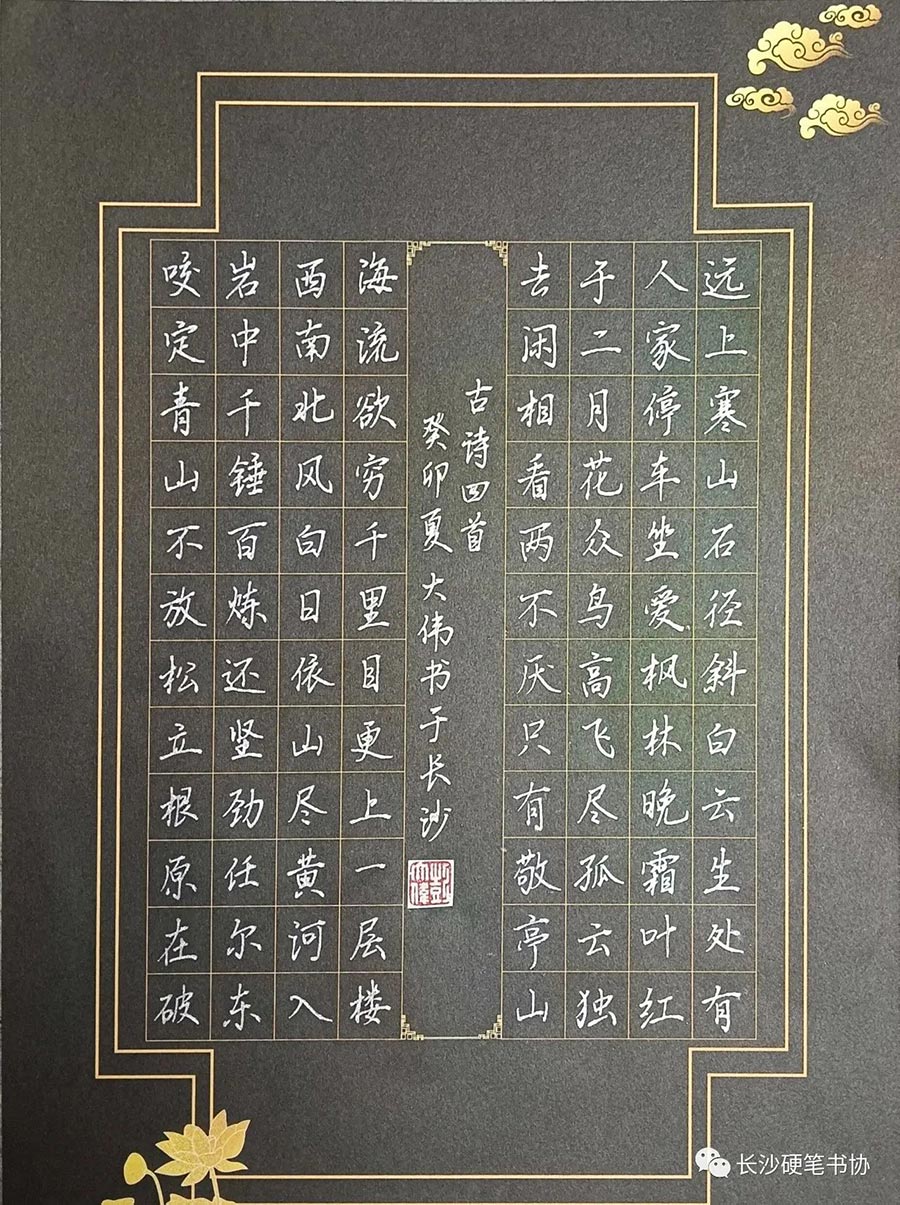 远上寒山石径斜白云生处有
人家停车坐爱枫林晚霜叶红
于二月花众鸟高飞尽孤云独
去闲相看两不厌只有敬亭山
咬定青山不放松立根原在破
岩中千锤百炼还坚劲任尔东
西南北风白日依山尽黄河入
海流欲穷千里目更上一层楼
古诗四首
癸卯夏 大伟书于长沙
彭大偉
长沙硬笔书协